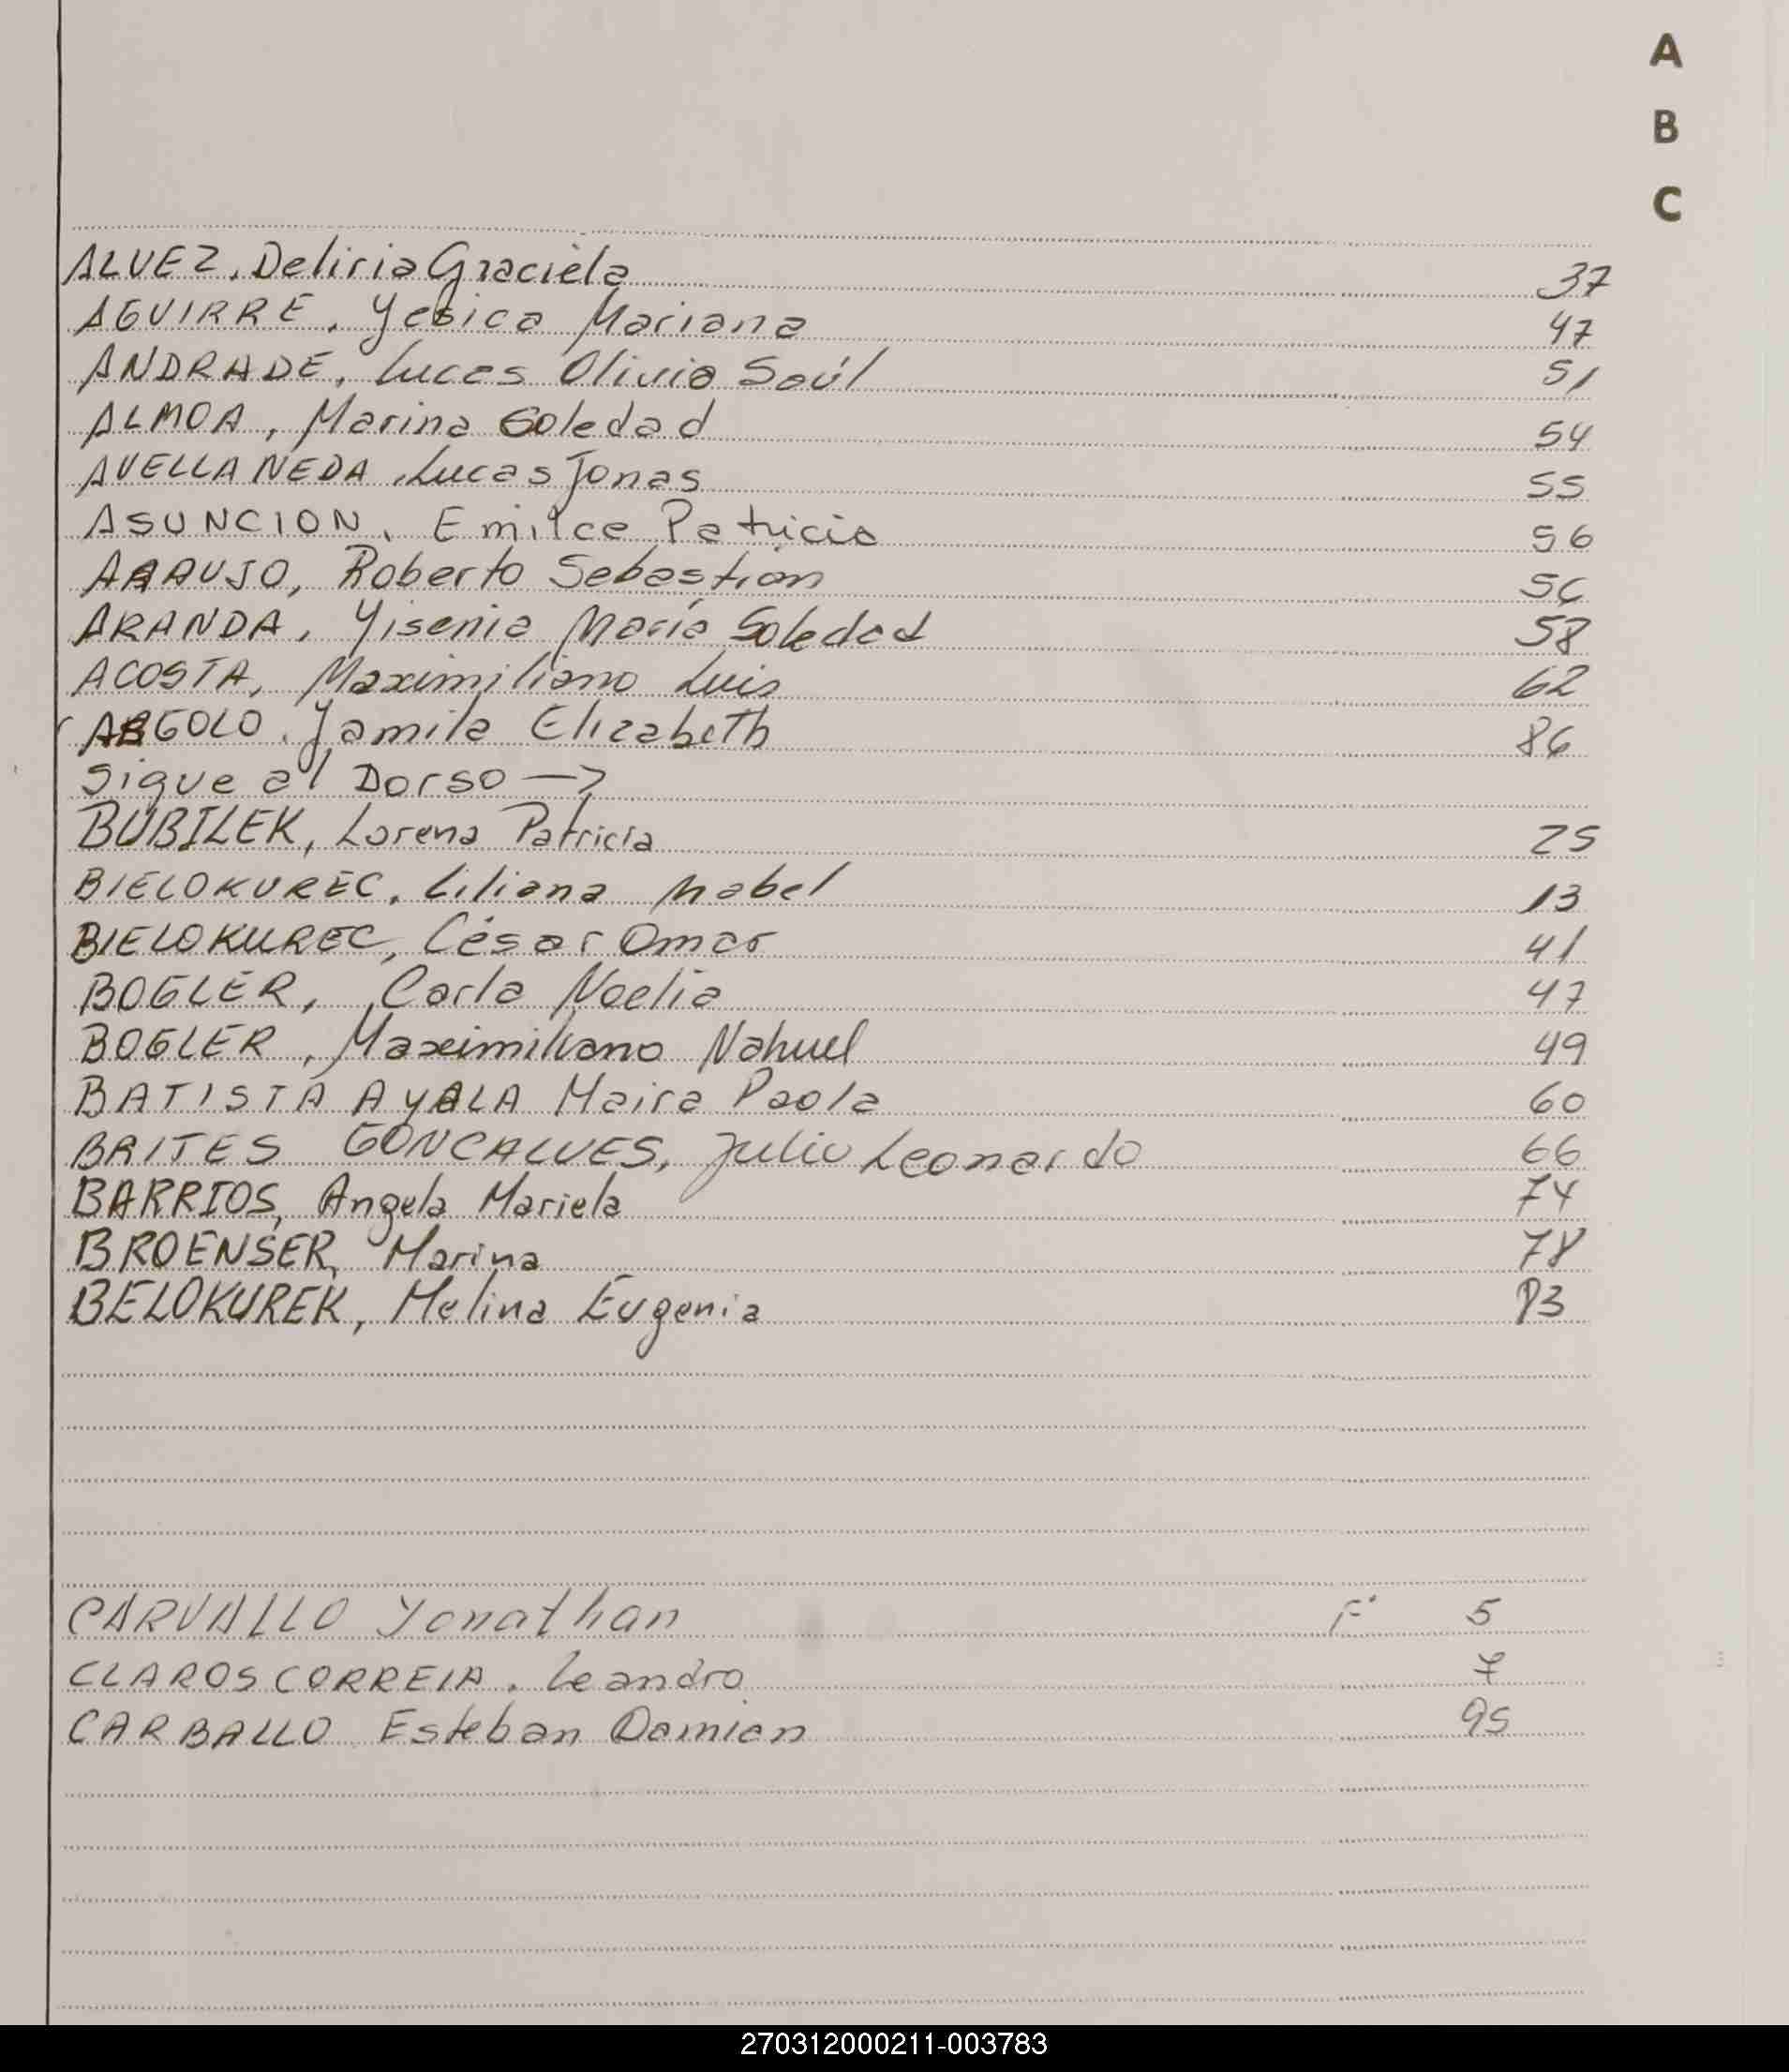 A
B
C
ALVEZ, Deliria Graciela 37
AGUIRRE, Yesica Mariana 47
ANDRADE, Lucas Olivio Saúl 51
ALMOA, Marina Soledad 54
AVELLANEDA, Lucas Jonas 55
ASUNCION, Emilce Patricia 56
ARAUJO, Roberto Sebastian 56
ARANDA, Yisenia María Soledad 58
ACOSTA, Maximiliano Luis 62
ARGOLO, Jamila Elizabeth 86
Sigue al Dorso →
BUBILEK, Lorena Patricia 25
BIELOKUREC, Liliana Mabel 13
BIELOKUREC, César Omar 41
BOGLER, Carla Noelia 47
BOGLER, Maximiliano Nahuel 49
BATISTA AYALA Maira Paola 60
BRITES GONCALVES, Julio Leonardo 66
BARRIOS, Angela Mariela 74
BROENSER, Marina 78
BELOKUREK, Melina Eugenia 83
CARVALLO Yonathan F° 5
CLAROS CORREIA, Leandro 7
CARBALLO Esteban Damian 95
270312000211-003783